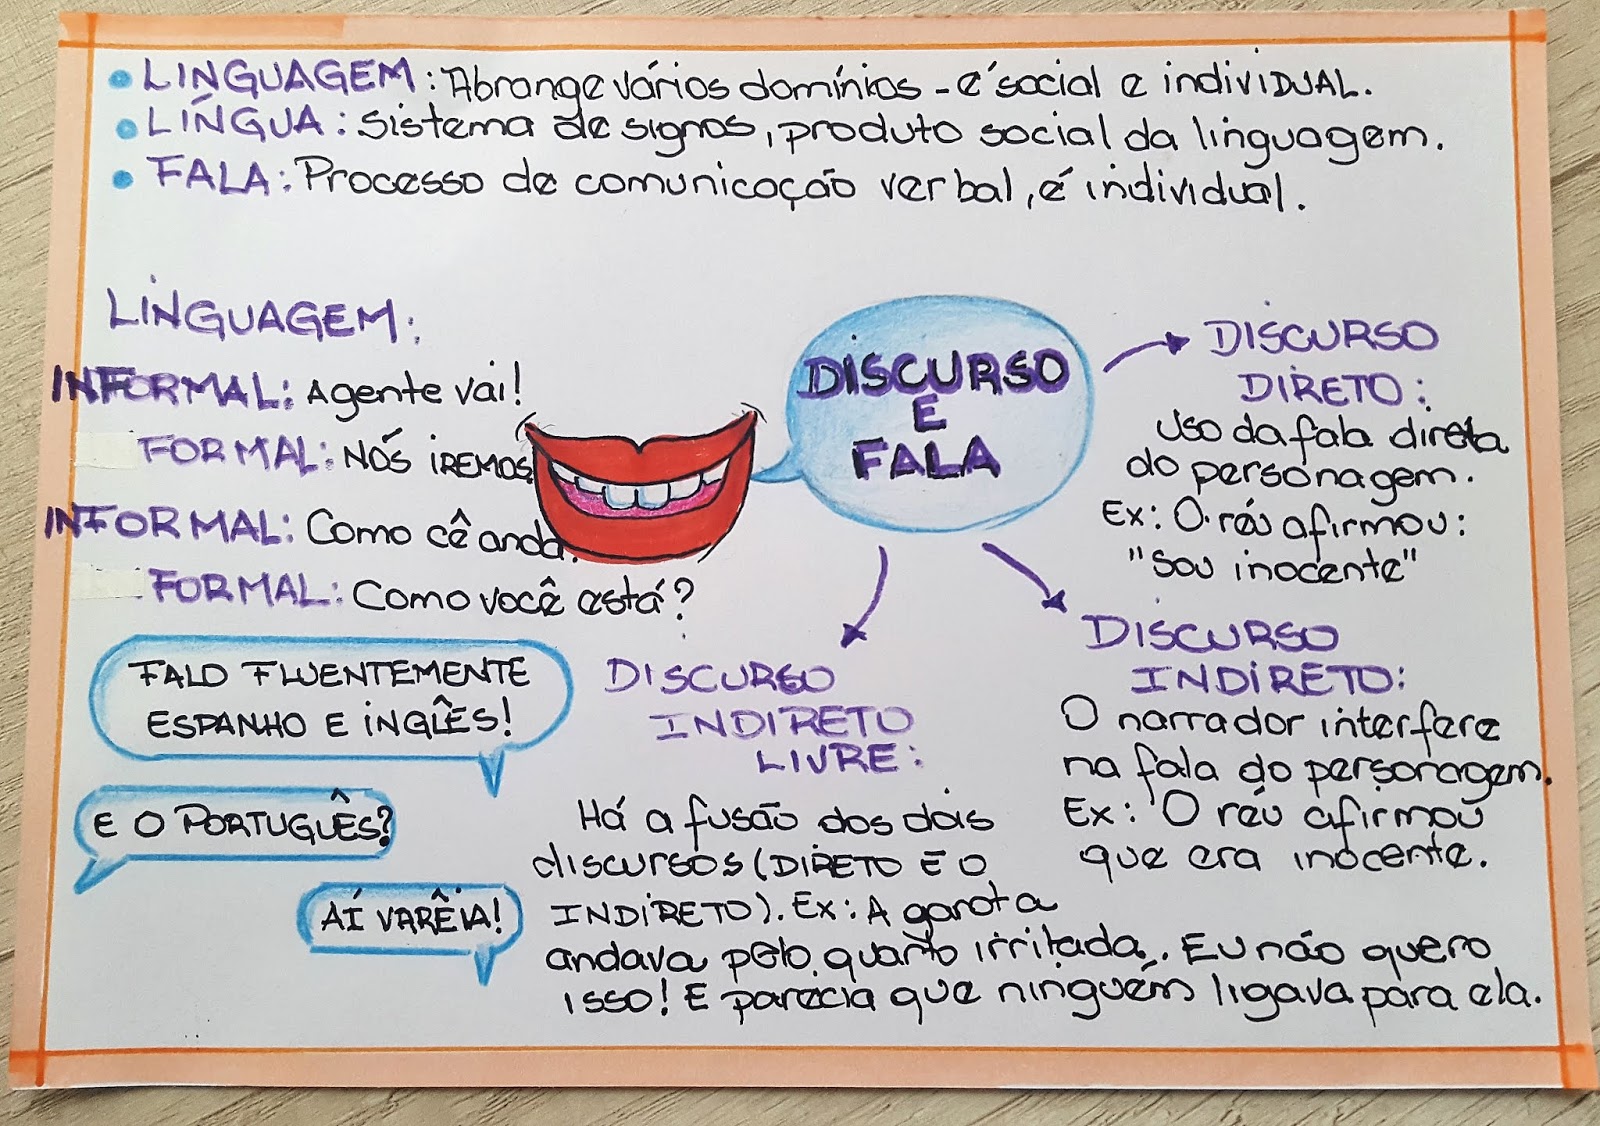 • LINGUAGEM: Abrange vários domínios - é social e individual.
• LÍNGUA: Sistema de signos, produto social da linguagem.
• FALA: Processo de comunicação verbal, é individual.
LINGUAGEM:
INFORMAL: Agente vai!
FORMAL: NÓS IREMOS
INFORMAL: Como cê anda.
FORMAL: Como você está?
FALO FLUENTEMENTE
ESPANHO E INGLÊS!
E O PORTUGUÊS?
AÍ VARÊIA!
DISCURSO
E
FALA
DISCURSO
DIRETO:
Uso da fala direta
do personagem.
Ex: O réu afirmou:
"Sou inocente"
DISCURSO
INDIRETO:
O narrador interfere
na fala do personagem.
Ex: O réu afirmou
que era inocente.
DISCURSO
INDIRETO
LIVRE:
Há a fusão dos dois
discursos (DIRETO E O
INDIRETO). Ex: A garota
andava pelo quarto irritada. Eu não quero
isso! E parecia que ninguém ligava para ela.